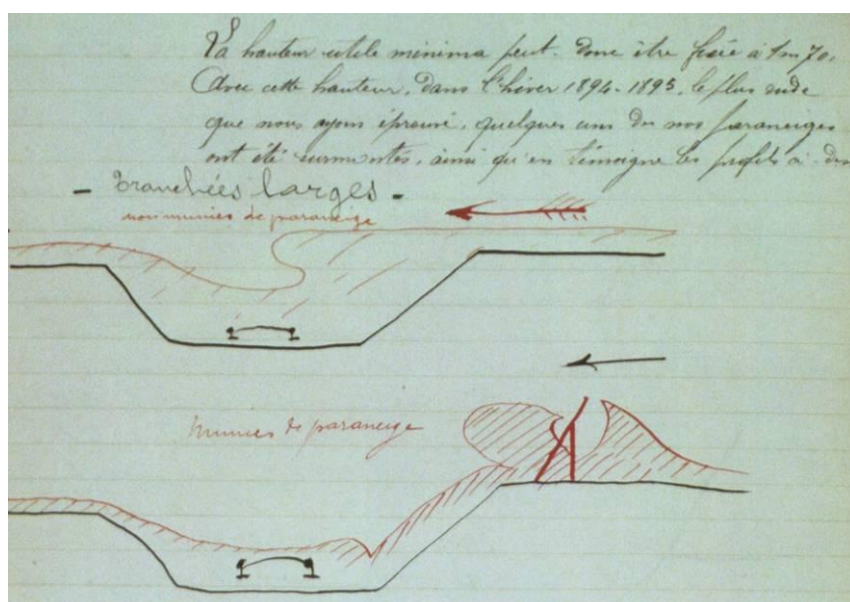 La hauteur utile minima peut donc être fixée à 1m70.
Avec cette hauteur, dans l'hiver 1894-1895, le plus rude
que nous ayons éprouvé, quelques uns de nos paraneiges
ont été surmontés, ainsi qu'en témoigne les profils ci-des
- Tranchées larges -
non munies de paraneige
munies de paraneige